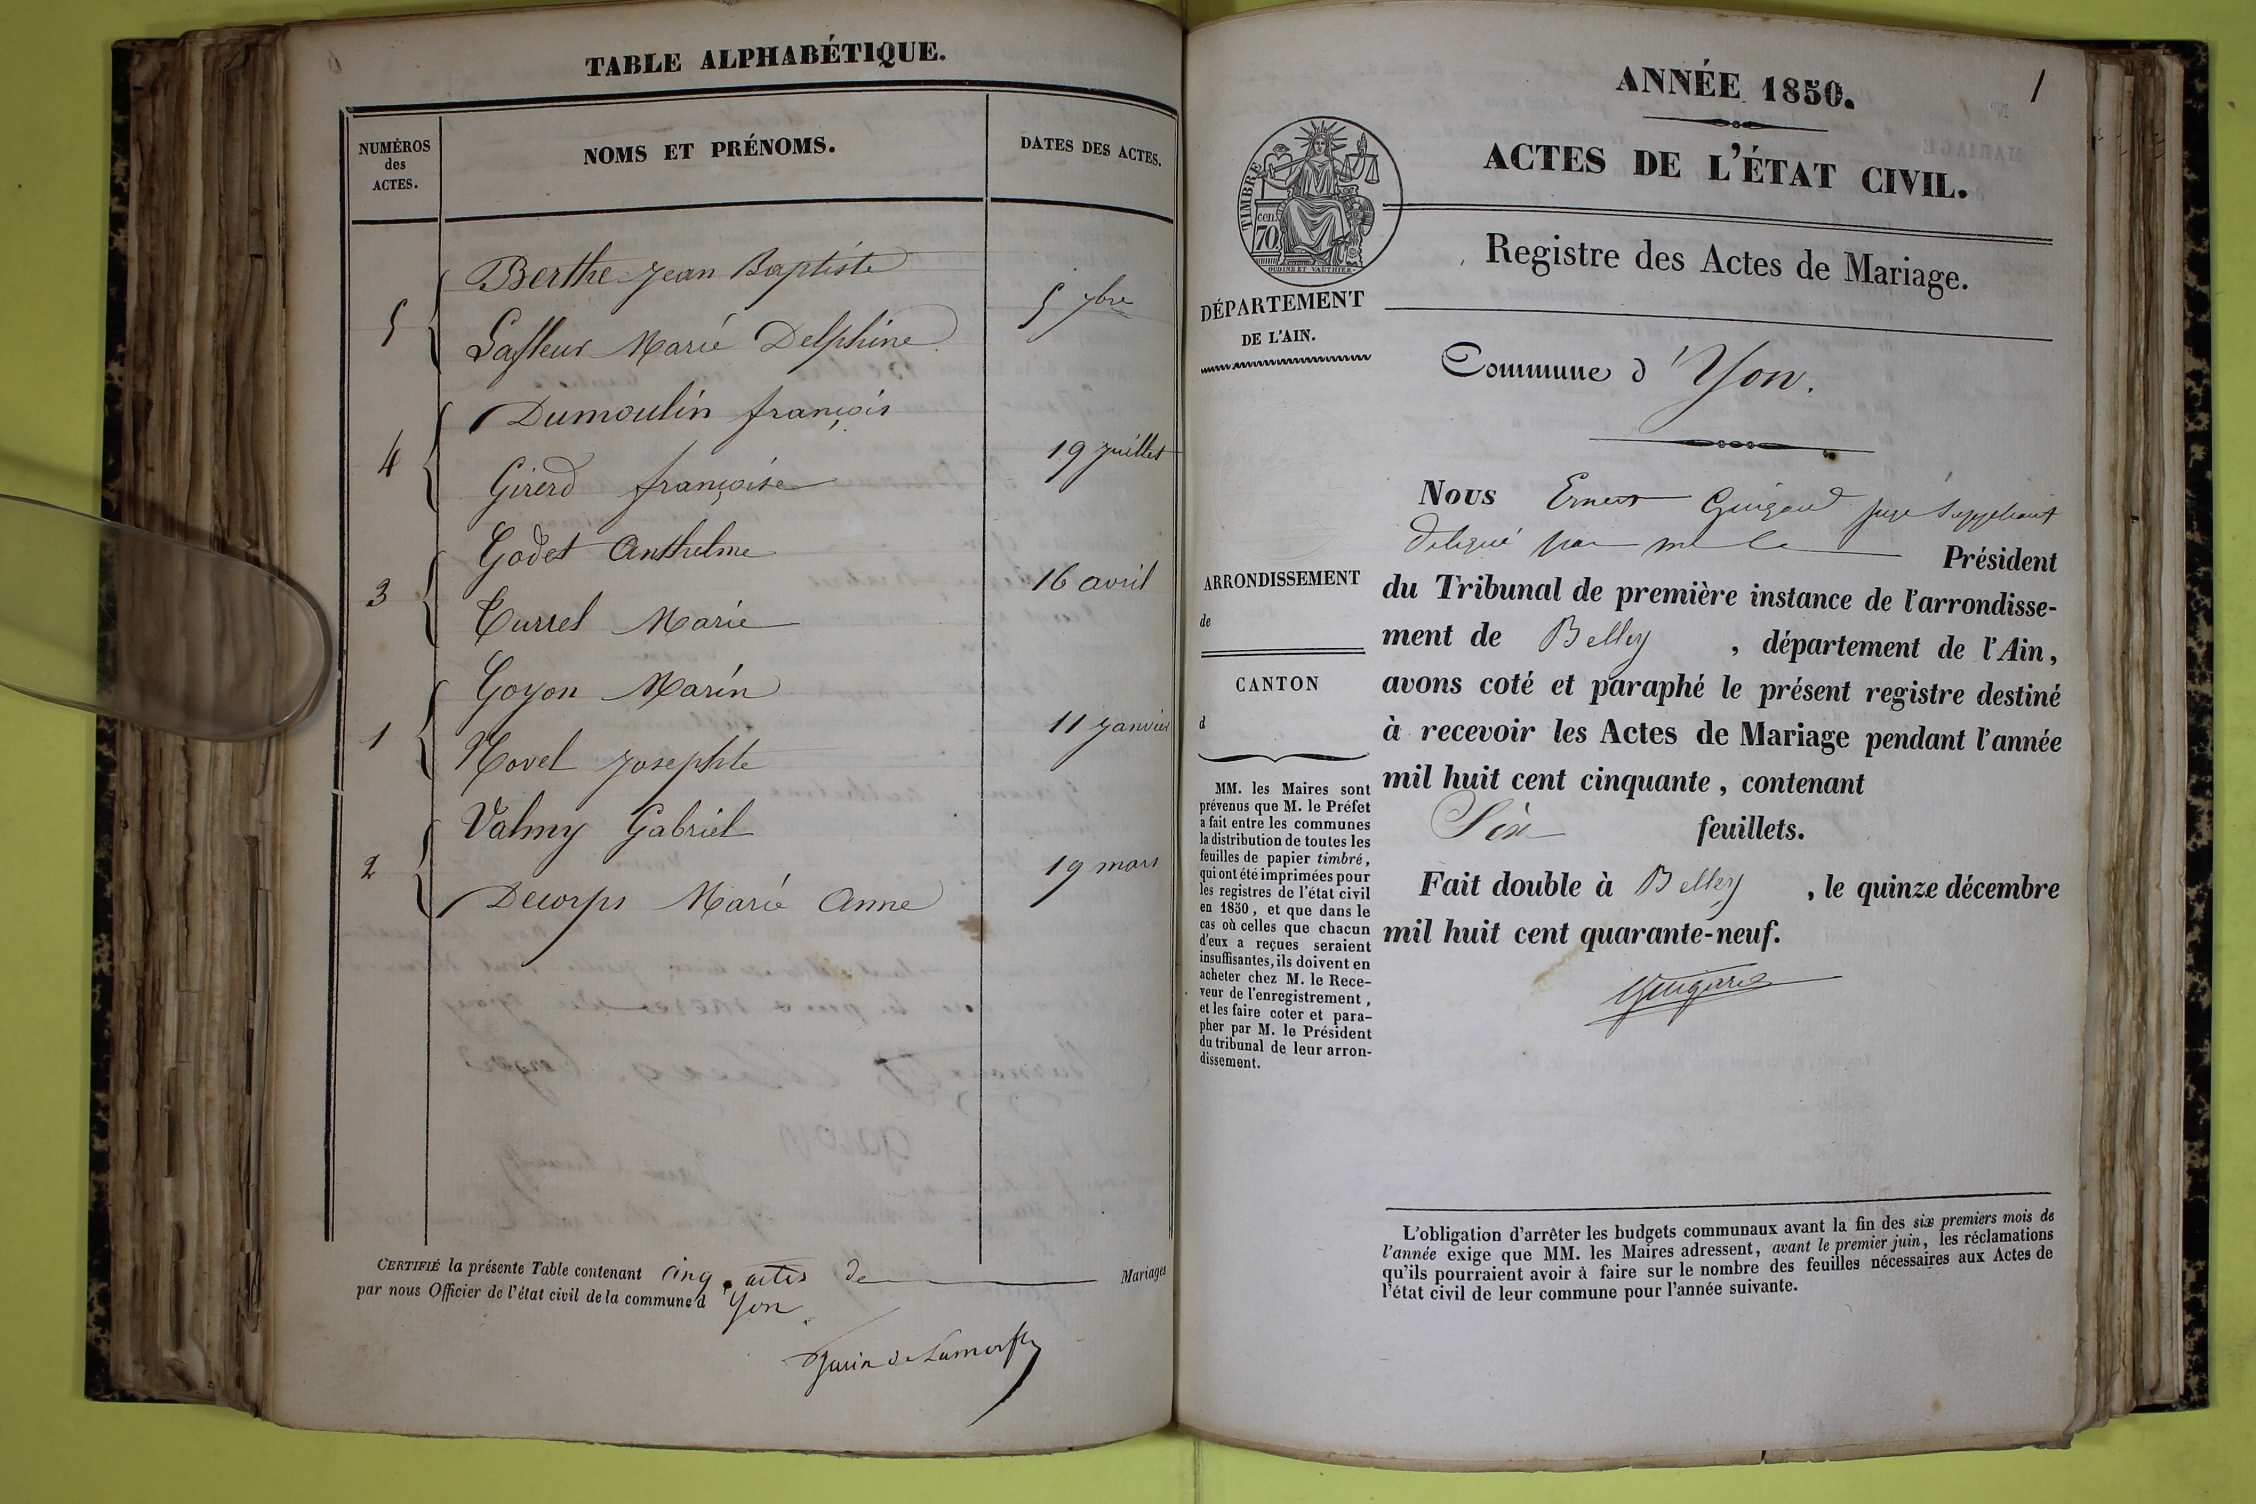 TABLE ALPHABÉTIQUE.
NUMÉROS
des
ACTES.
NOMS ET PRÉNOMS.
DATES DES ACTES.
Berthe Jean Baptiste
5
5 7bre
Lafleur Marie Delphine
Dumoulin françois
4
19 Juillet
Girerd françoise
Godet Anthelme
3
16 avril
Currel Marie
Goyon Marin
1
11 Janvier
Novel Josephte
Valmy Gabriel
2
19 mars
Decorps Marie Anne
CERTIFIÉ la présente Table contenant cinq actes de Mariages
par nous Officier de l'état civil de la commune d Yon
1
ANNÉE 1850.
ACTES DE L'ÉTAT CIVIL.
TIMBRE
cen.
70
OUDINE ET VAUTHIER
Registre des Actes de Mariage.
DÉPARTEMENT
DE L'AIN.
Commune d'Yon.
Nous Ernest Guigard juge Suppleant
délégué par mr le Président
ARRONDISSEMENT
de
CANTON
d
du Tribunal de première instance de l'arrondisse-
ment de Belley , département de l'Ain,
avons coté et paraphé le présent registre destiné
à recevoir les Actes de Mariage pendant l'année
mil huit cent cinquante, contenant
Six feuillets.
Fait double à Belley , le quinze décembre
mil huit cent quarante-neuf.
Guigard
MM. les Maires sont
prévenus que M. le Préfet
a fait entre les communes
la distribution de toutes les
feuilles de papier timbré,
qui ont été imprimées pour
les registres de l'état civil
en 1850, et que dans le
cas où celles que chacun
d'eux a reçues seraient
insuffisantes, ils doivent en
acheter chez M. le Rece-
veur de l'enregistrement,
et les faire coter et para-
pher par M. le Président
du tribunal de leur arron-
dissement.
L'obligation d'arrêter les budgets communaux avant la fin des six premiers mois de
l'année exige que MM. les Maires adressent, avant le premier juin, les réclamations
qu'ils pourraient avoir à faire sur le nombre des feuilles nécessaires aux Actes de
l'état civil de leur commune pour l'année suivante.